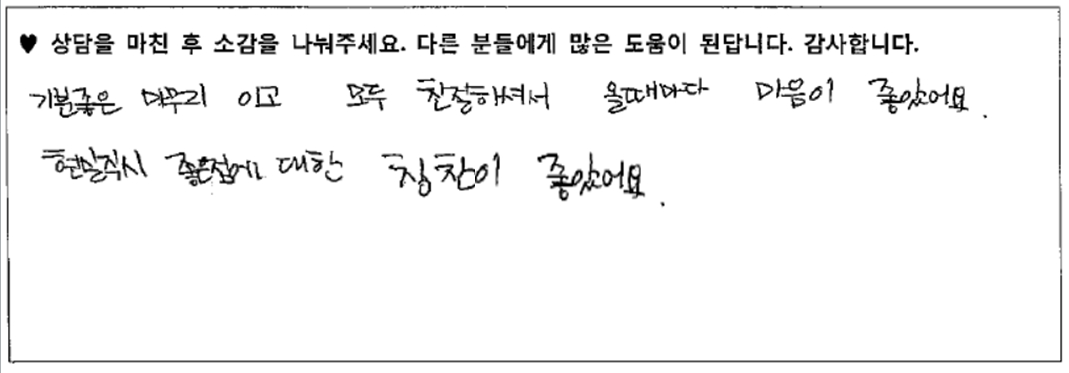 ♥ 상담을 마친 후 소감을 나눠주세요. 다른 분들에게 많은 도움이 된답니다. 감사합니다.
기분좋은 마무리 이고 모두 친절하셔서 올때마다 마음이 좋았어요.
현실직시 좋은점에 대한 칭찬이 좋았어요.